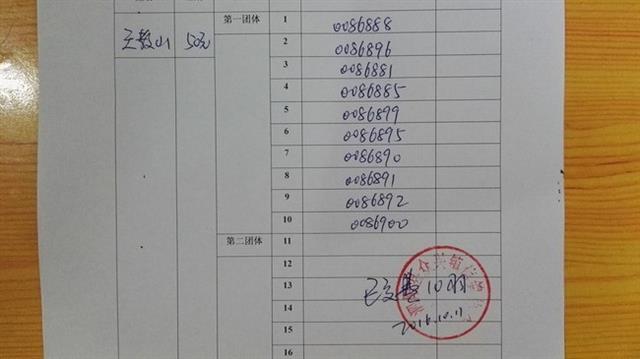 第一团体 1 0086888
王教山 50元 2 0086896
3 0086881
4 0086885
5 0086899
6 0086895
7 0086890
8 0086891
9 0086892
10 0086900
第二团体 11
12
13
14
15
16
2016.10.11